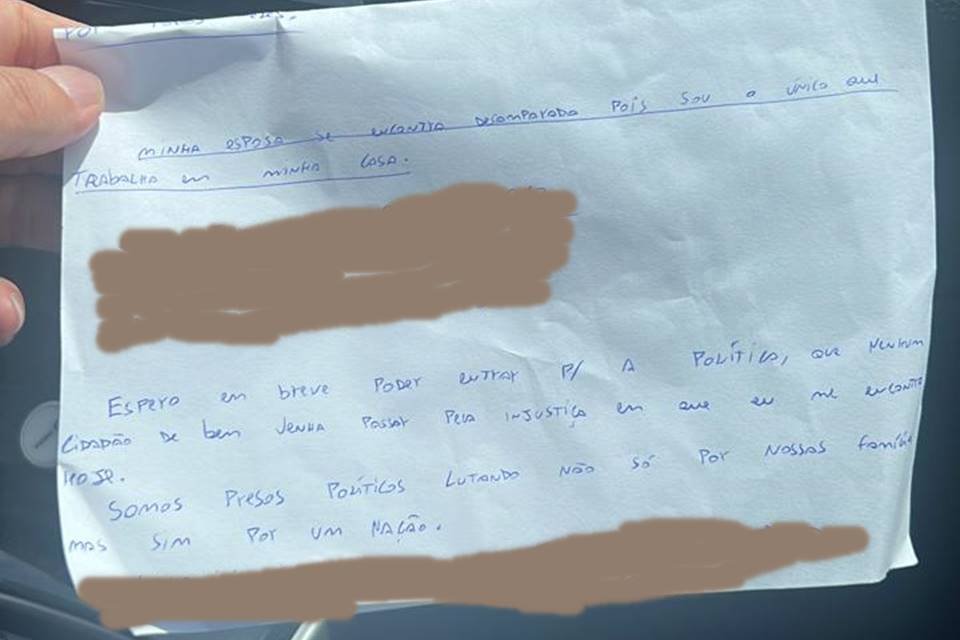 MINHA ESPOSA SE ENCONTRA DESAMPARADA POIS SOU O ÚNICO QUE
TRABALHA EM MINHA CASA.
ESPERO EM BREVE PODER ENTRAR P/ A POLÍTICA, QUE NENHUM
CIDADÃO DE BEM VENHA PASSAR PELA INJUSTIÇA EM QUE EU ME ENCONTRO
HOJE.
SOMOS PRESOS POLÍTICOS LUTANDO NÃO SÓ POR NOSSAS FAMÍLIA
MAS SIM POR UM NAÇÃO.